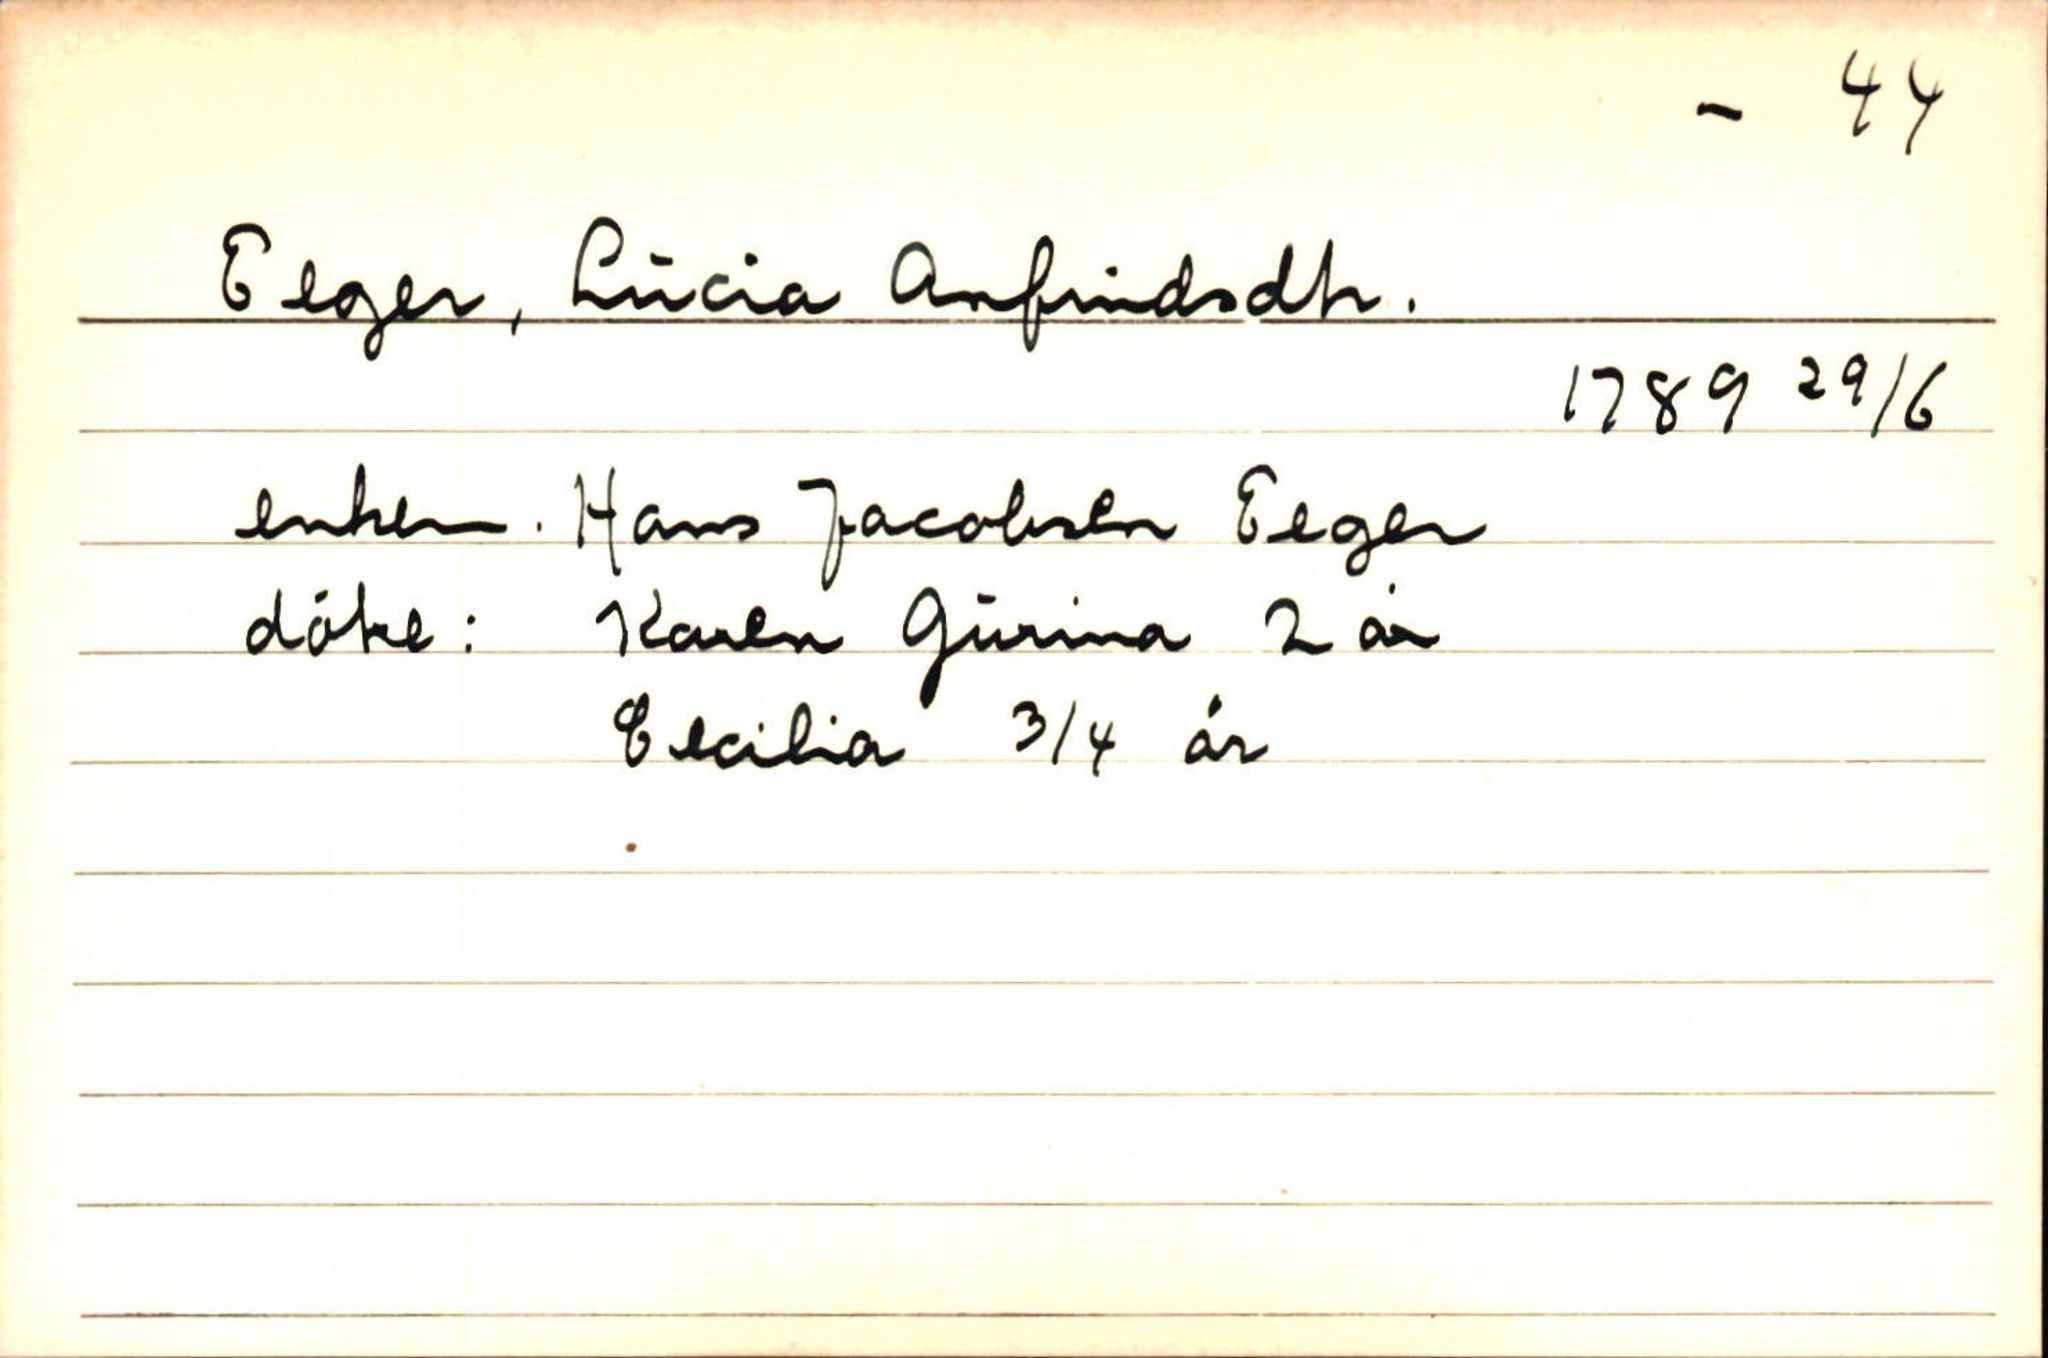 - 44
Eeger, Lucia Anfindsdtr.
1789 29/6
enkem. Hans Jacobsen Eeger
døtre: Karen Gurina 2 år
Cecilia 3/4 år